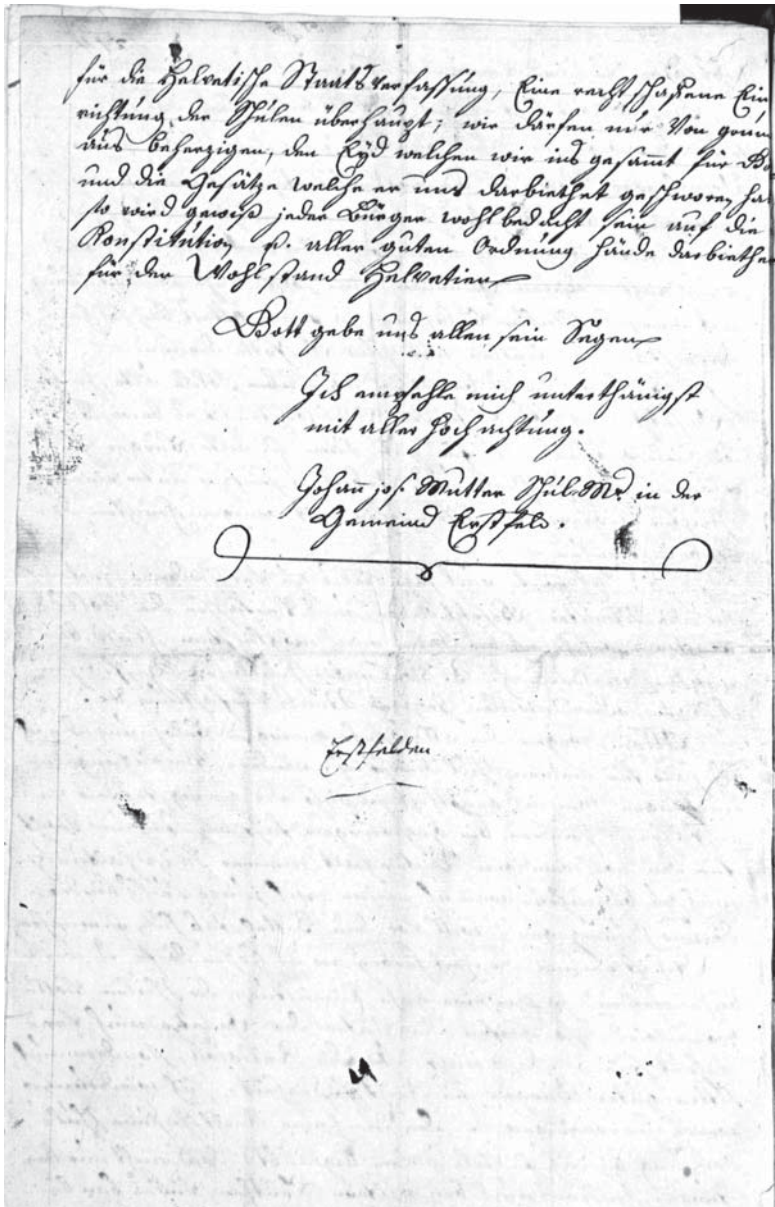 für die Helvetische Staatsverfassung, Eine rechtschaffene Ein
richtung der Schulen überhaupt; wir därfen nur Von grun
aus beherzigen, den Eyd welchen wir ins gesammt für
und die Gesätze welche er uns darbiethet geschworen ha
so wird gewiß jeder Bürger wohlbedacht sein auf die
Konstitution u. aller guten Ordnung hände darbiethe
für den Wohlstand Helvetiens
Gott gebe uns allen sein Segen
Ich empfehle mich unterthänigst
mit aller Hochachtung.
Johann jos. Mutter Schul Mr. in der
Gemeind Erstfeld.
Erstfelden